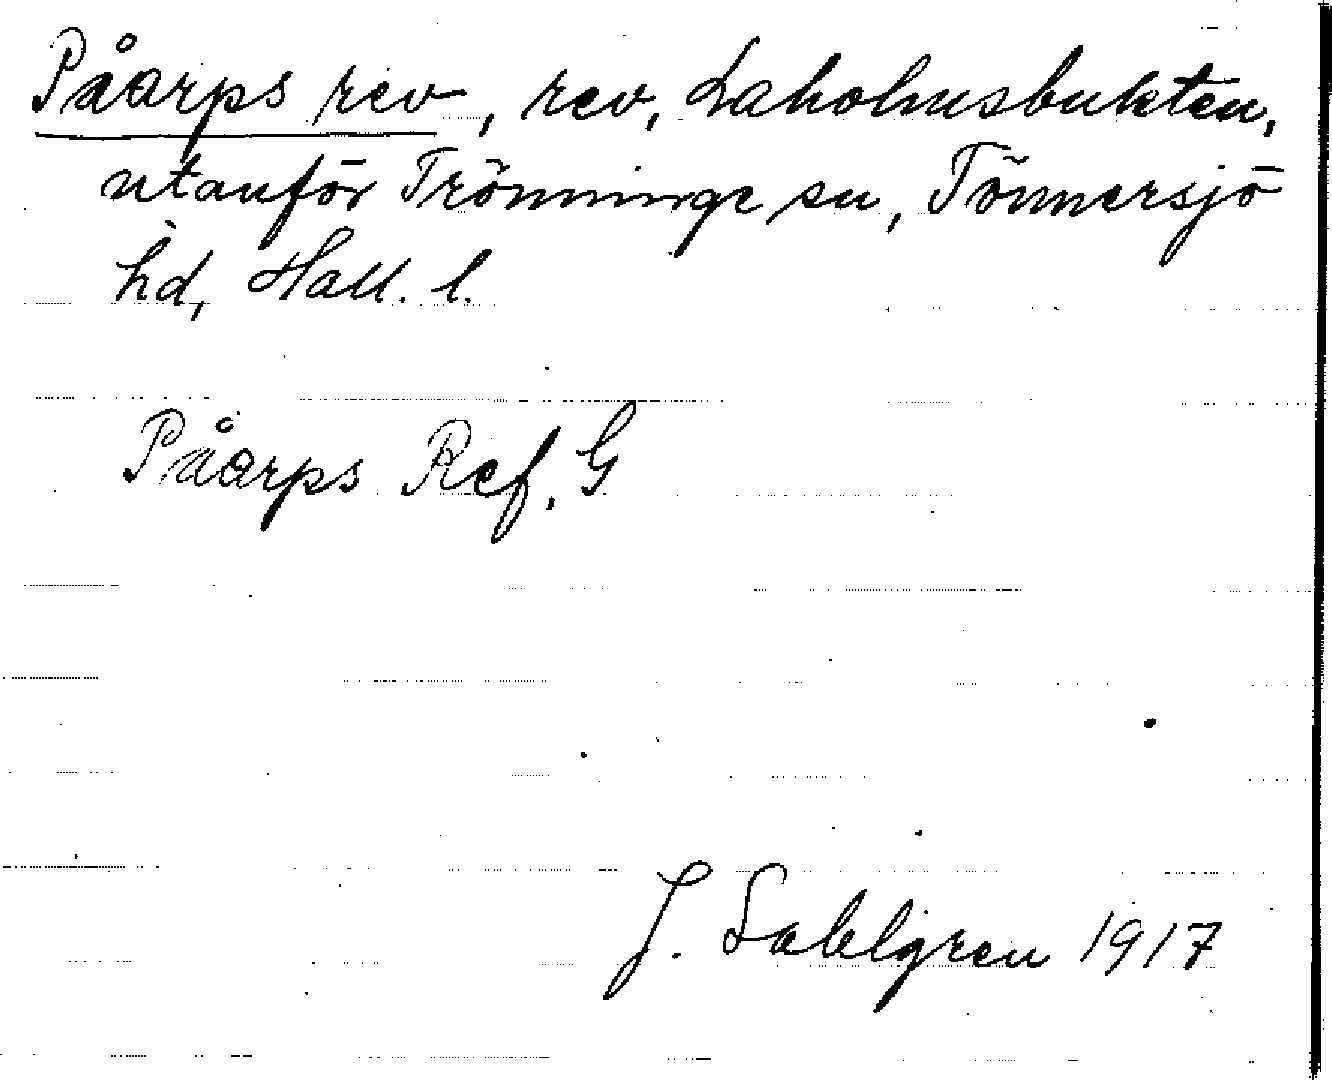 Påarps rev, rev, Laholmsbukten,
utanför Trönninge sn, Tönnersjö
hd, Hall. l.
Påarps Ref. G
J. Sahlgren 1917